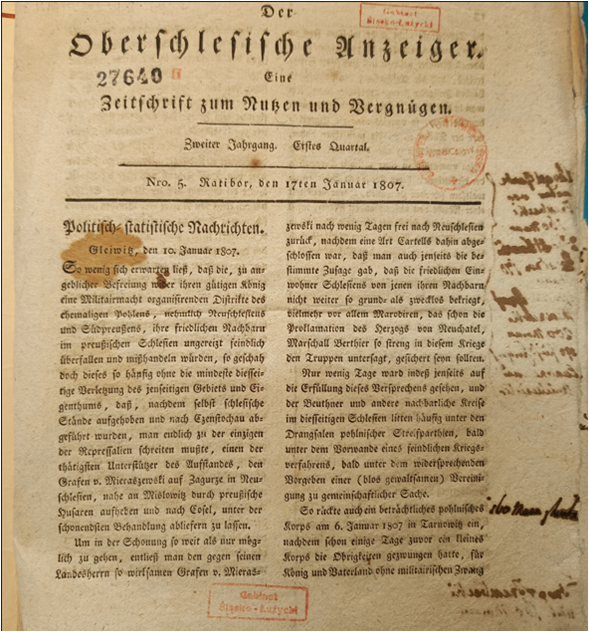 Der
Gabinet
Śląsko-Łużycki
Oberschlesische Anzeiger.
27640
Eine
Zeitschrift zum Nutzen und Vergnügen.
Zweiter Jahrgang. Erstes Quartal.
Nro. 5. Ratibor, den 17ten Januar 1807.
Politisch-statistische Nachrichten.
Gleiwitz, den 10. Januar 1807.
So wenig sich erwarten ließ, daß die, zu an-
geblicher Befreiung wider ihren gütigen König
eine Militairmacht organisirenden Distrikte des
ehemaligen Pohlens, nehmlich Neuschlesiens
und Südpreußens, ihre friedlichen Nachbarn
im preußischen Schlesien ungereizt feindlich
überfallen und mißhandeln würden, so geschah
doch dieses so häufig ohne die mindeste diessei-
tige Verletzung des jenseitigen Gebiets und Ei-
genthums, daß, nachdem selbst schlesische
Stände aufgehoben und nach Czenstochau ab-
geführt wurden, man endlich zu der einzigen
der Repressalien schreiten mußte, einen der
thätigsten Unterstützer des Aufstandes, den
Grafen v. Mieraszewski auf Zagurze in Neu-
schlesien, nahe an Mislowitz durch preußische
Husaren aufheben und nach Cosel, unter der
schonendsten Behandlung abliefern zu lassen.
Um in der Schonung so weit als nur mög-
lich zu gehen, entließ man den gegen seinen
Landesherrn so wirksamen Grafen v. Mieras-
zewski nach wenig Tagen frei nach Neuschlesien
zurück, nachdem eine Art Cartells dahin abge-
schlossen war, daß man auch jenseits die be-
stimmte Zusage gab, daß die friedlichen Ein-
wohner Schlesiens von jenen ihren Nachbarn
nicht weiter so grund- als zwecklos bekriegt,
vielmehr vor allem Marodiren, das schon die
Proklamation des Herzogs von Neuchatel,
Marschall Berthier so streng in diesem Kriege
den Truppen untersagt, gesichert seyn sollten.
Nur wenig Tage ward indeß jenseits auf
die Erfüllung dieses Versprechens gesehen, und
der Beuthner und andere nachbarliche Kreise
im diesseitigen Schlesien litten häufig unter den
Drangsalen pohlnischer Streifparthien, bald
unter dem Vorwande eines feindlichen Kriegs-
verfahrens, bald unter dem widersprechenden
Vorgeben einer (blos gewaltsamen) Vereini-
gung zu gemeinschaftlicher Sache.
So rückte auch ein beträchtliches pohlnisches
Korps am 6. Januar 1807 in Tarnowitz ein,
nachdem schon einige Tage zuvor ein kleines
Korps die Obrigkeiten gezwungen hatte, für
König und Vaterland ohne militairischen Zwang
Gabinet
Śląsko-Łużycki